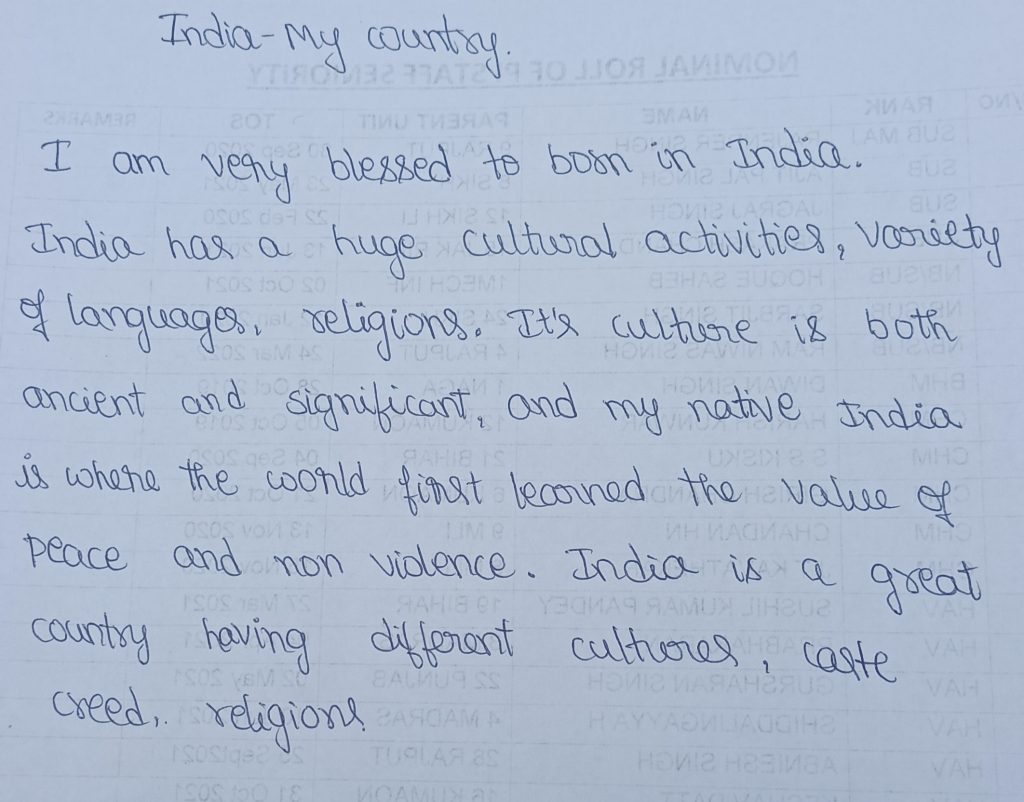 India-My country.
I am very blessed to born in India.
India has a huge cultural activities, variety
of languages, religions. It's culture is both
ancient and significant, and my native India
is where the world first learned the value of
peace and non violence. India is a great
country having different cultures, caste
creed, religions.